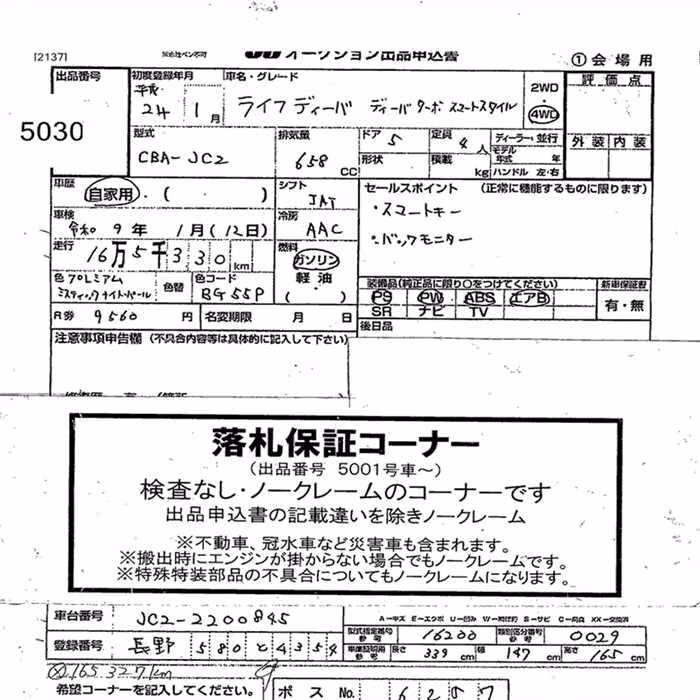 [2137] オークション出品申込書 ①会場用
出品番号 初度登録年月 車名・グレード 評価点
5030 平成 24 1月 ライフディーバ ディーバターボ スマートスタイル 2WD 4WD
型式 排気量 ドア 5 定員 4人 ディーラー・並行 外装 内装
CBA-JC2 658 CC 形状 積載 kg モデル年式 年 ハンドル 左・右
車歴 自家用・( ・ ) シフト JAT セールスポイント (正常に機能するものに限ります)
車検 令和 9年 1月(12日) 冷房 AAC ・スマートキー
走行 16万5千330km 燃料 ガソリン 軽油 ( ) ・バックモニター
色 プレミアムミスティックナイト・パール 色替 色コード BG55P 装備品(純正品に限り○をつけてください) 新車保証書
PS PW ABS エアB 有・無
SR ナビ TV
R券 9560円 名変期限 月 日 後日品
注意事項申告欄 (不具合内容等は具体的に記入して下さい)
落札保証コーナー
(出品番号 5001号車~)
検査なし・ノークレームのコーナーです
出品申込書の記載違いを除きノークレーム
※不動車、冠水車など災害車も含まれます。
※搬出時にエンジンが掛からない場合でもノークレームです。
※特殊特装部品の不具合についてもノークレームになります。
車台番号 JC2-2200845 A-キズ E-エクボ U-凹み
型式指定番号 参考 16200 類別区分番号 参考 0029
登録番号 長野 580 と 4354 車庫証明用 参考 長さ 339cm 幅 147cm 高さ 165cm
165,327km
希望コーナーを記入してください。 ボス No. 6257